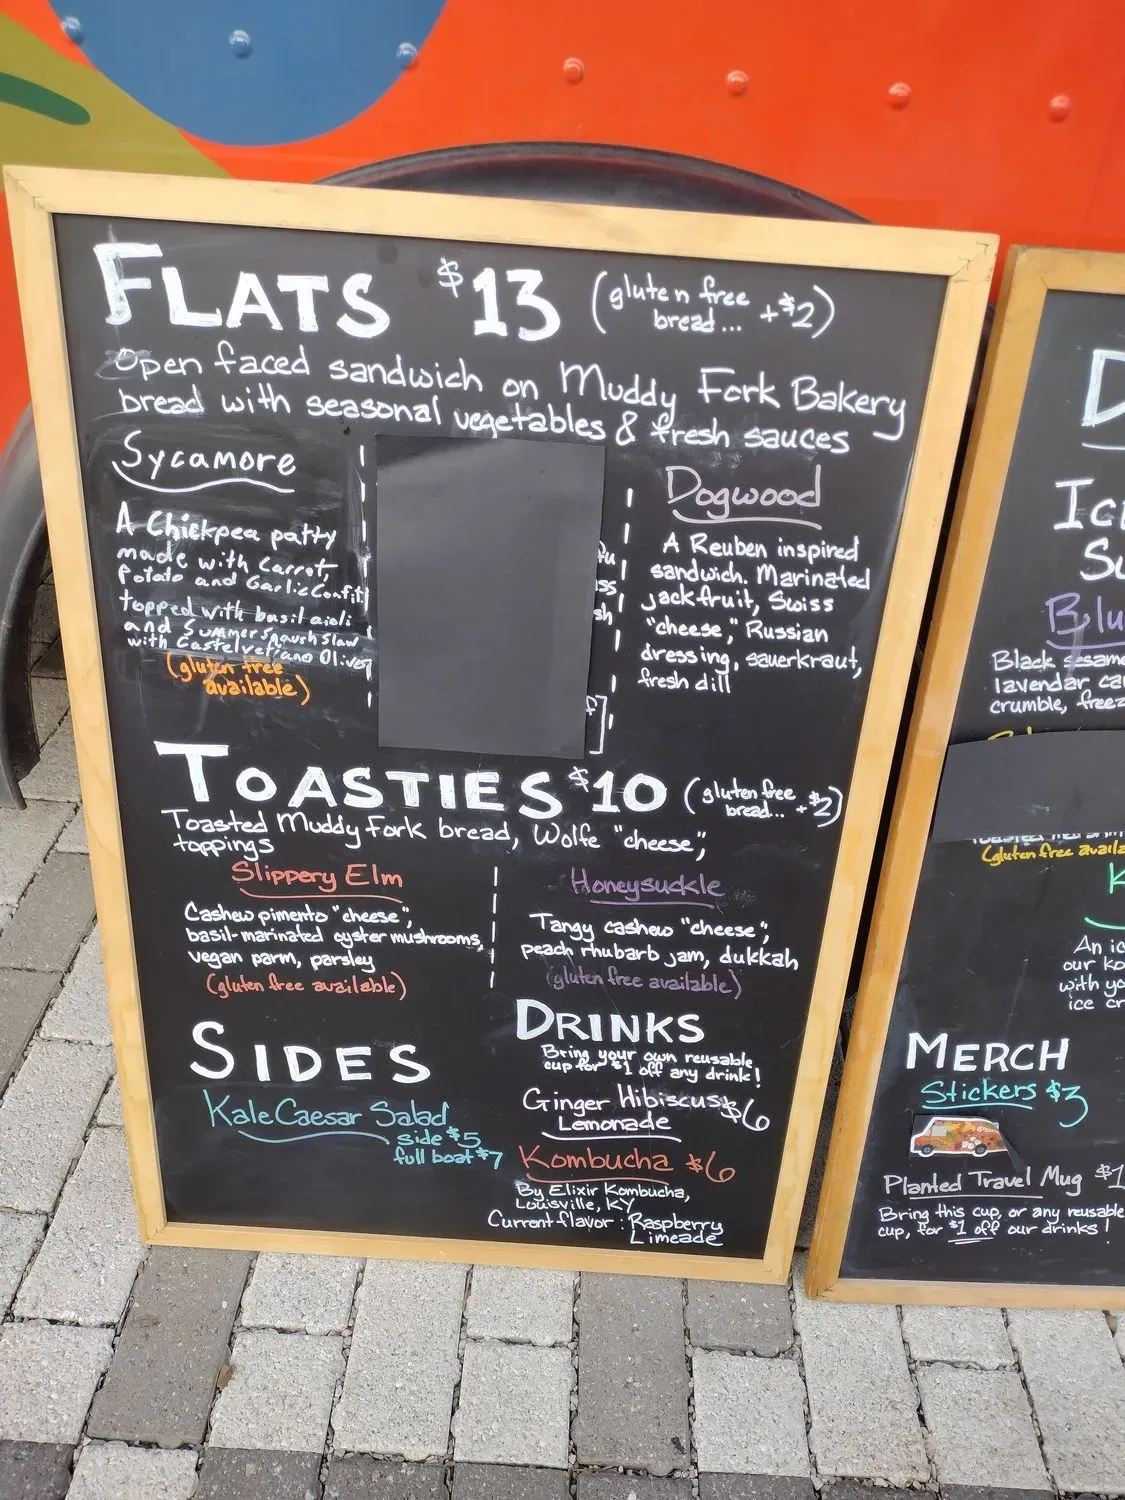 FLATS $13 (gluten free bread... +$2)
Open faced sandwich on Muddy Fork Bakery
bread with seasonal vegetables & fresh sauces
Sycamore
A Chickpea patty
made with Carrot,
Potato and Garlic Confit
topped with basil aioli
and Summer Squash Slaw
with Castelvetrano Olives
(gluten free
available)
Dogwood
A Reuben inspired
sandwich. Marinated
jackfruit, Swiss
"cheese," Russian
dressing, sauerkraut,
fresh dill
TOASTIES $10 (gluten free bread... +$2)
Toasted Muddy Fork bread, Wolfe "cheese",
toppings
Slippery Elm
Cashew pimento "cheese",
basil-marinated oyster mushrooms,
vegan parm, parsley
(gluten free available)
Honeysuckle
Tangy cashew "cheese",
peach rhubarb jam, dukkah
(gluten free available)
SIDES
Kale Caesar Salad
side $5
full boat $7
DRINKS
Bring your own reusable
cup for $1 off any drink!
Ginger Hibiscus $6
Lemonade
Kombucha $6
By Elixir Kombucha,
Louisville, KY
Current flavor: Raspberry
Limeade
Black sesame
crumble,
(gluten free
An
our
with
ice
MERCH
Stickers $3
Planted Travel Mug
Bring this cup, or any reusable
cup, for $1 off our drinks!